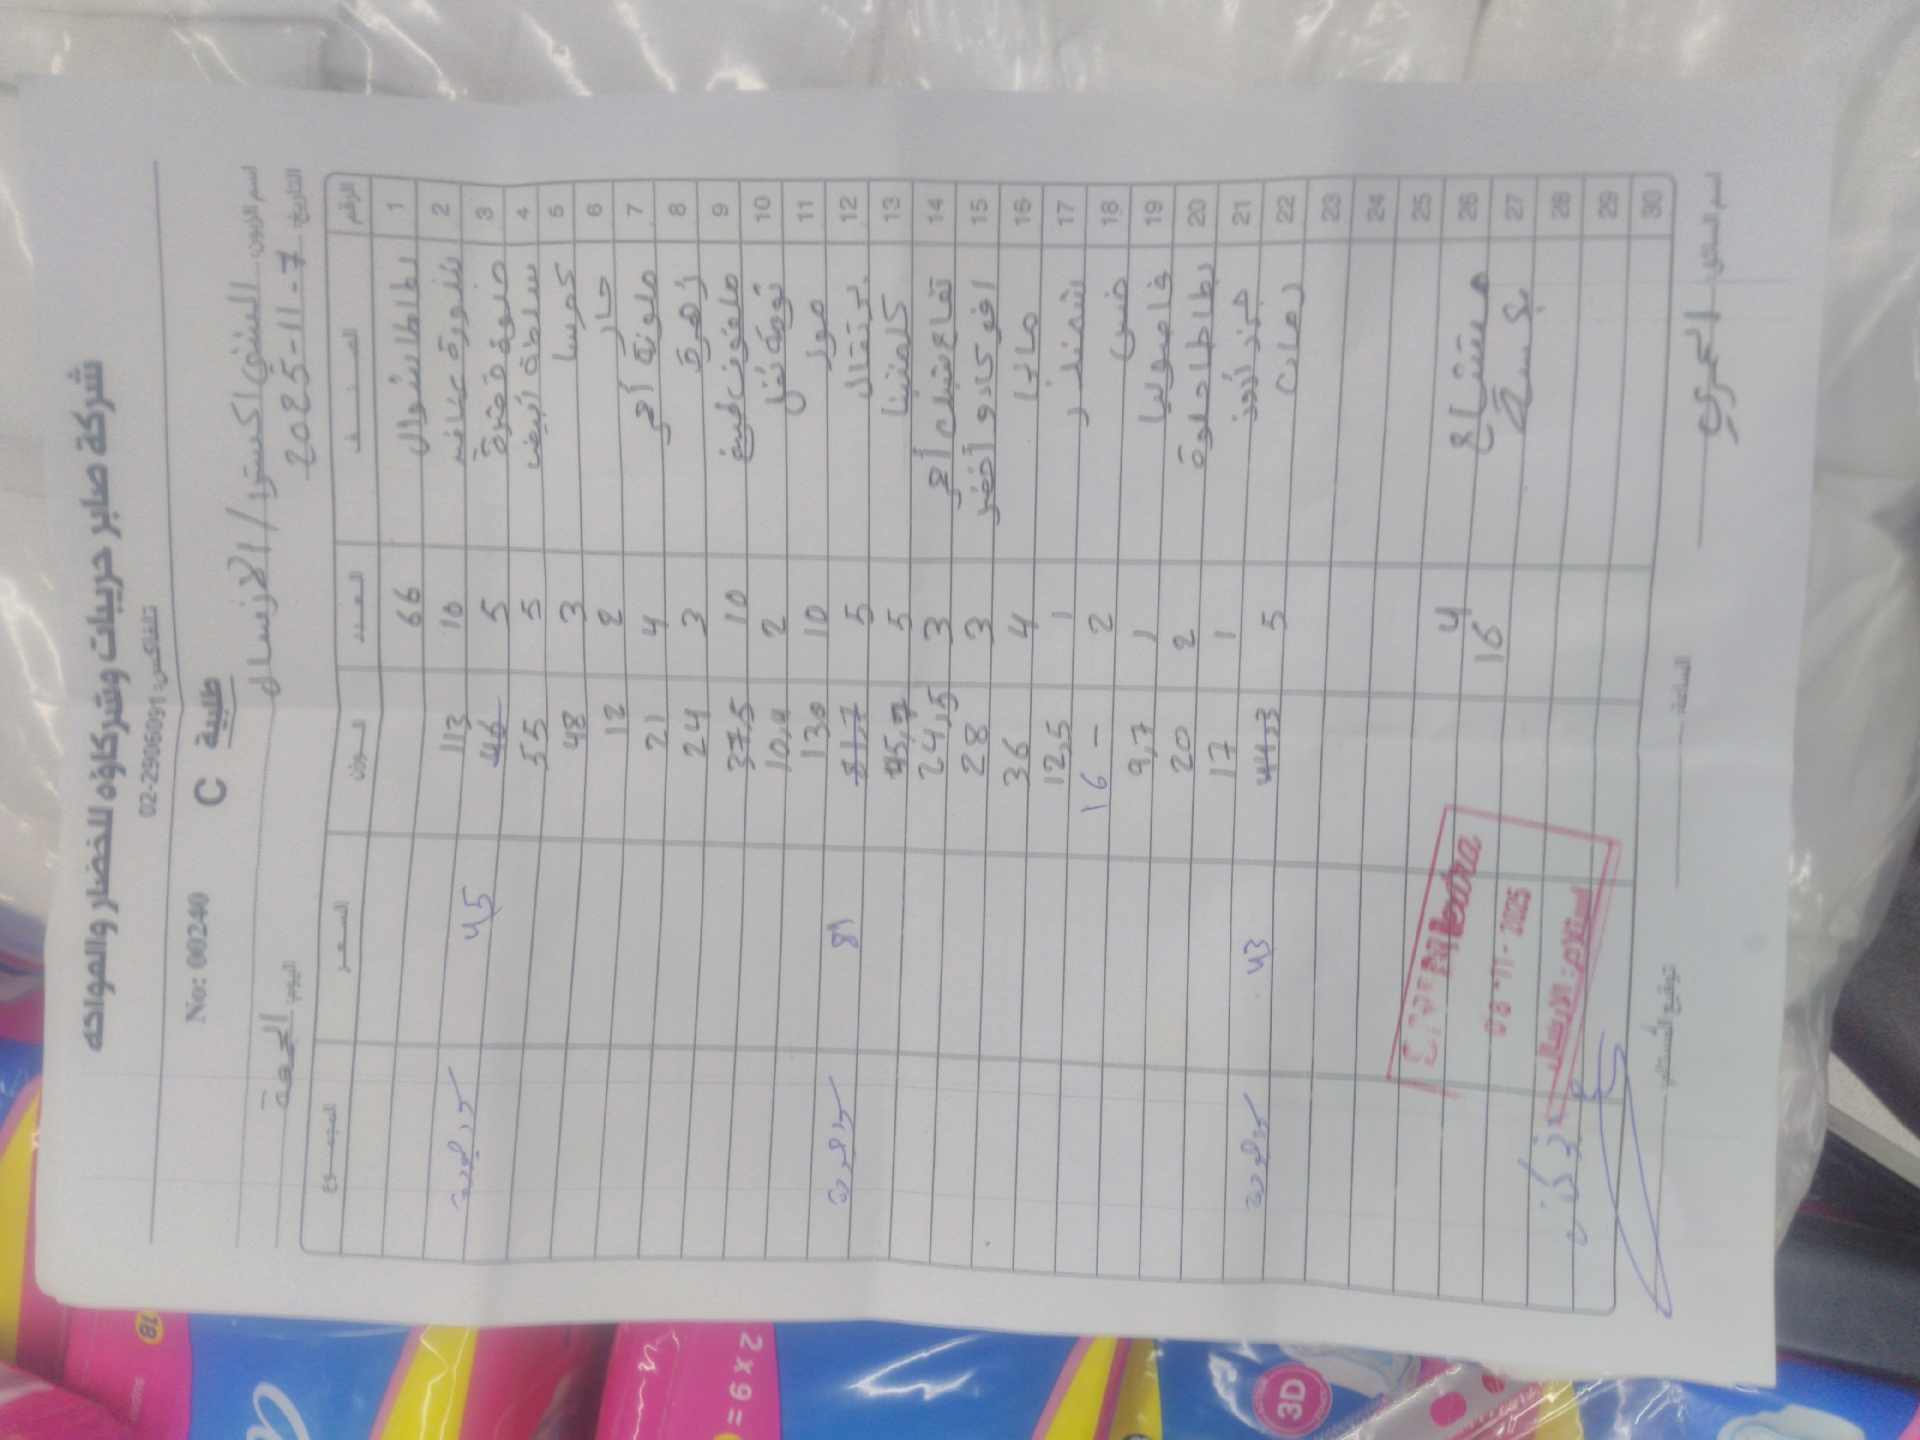 شركة صابر حريبات وشركاؤه للخضار والفواكه
تلفاكس: 02-2906091
No: 00240 C طلبية
اسم الزبون: الشني اكسترا / الارسال
التاريخ: 7-11-2025 اليوم: الجمعة
الرقم الصنف العدد الوزن السعر المجموع
1 بطاطا شوال 66
2 بندورة 10 113
3 5 46 45
4 سلطة أبيض 5 55
5 كوسا 3 48
6 حار 2 12
7 ملونة أحمر 4 21
8 زهرة 3 24
9 ملفوف 10 37,5
10 2
11 موز 10 130
12 برتقال 5 81,7 81
13 كلمنتينا 5 45,7
14 تفاح أحمر 3 24,5
15 افوكادو أخضر 3 28
16 مانجا 4 36
17 شمندر 1 12,5
18 خس 2 – 16
19 فاصوليا 1 9,7
20 بطاطا حلوة 2 20
21 جزر 1 17
22 رمان 5 44,3 43
23
24
25
26 مشتاح 4
27 بكسة 16
28
29
30
extra
2025
استلام: الارسال
اسم السائق: الساعة: توقيع المستلم:
3D
2 x 9 =
18